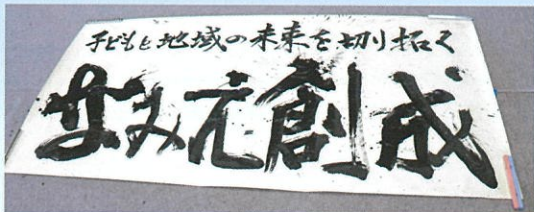 子どもと地域の未来を切り拓く
なみえ創成